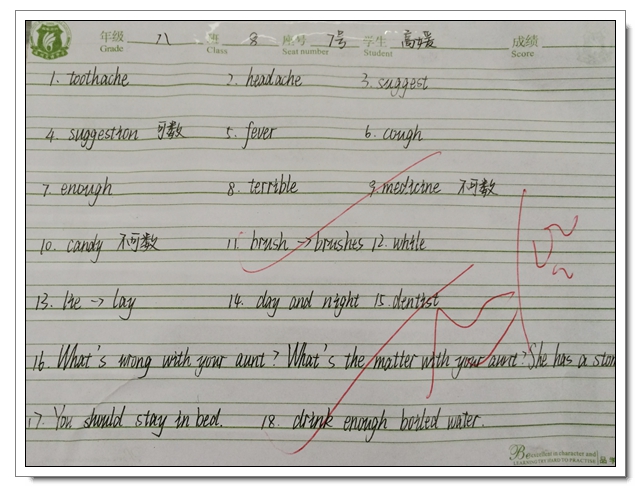 年级 八 班 8 座号 7号 学生 高媛 成绩
Grade Class Seat number Student Score
1. toothache 2. headache 3. suggest
4. suggestion 可数 5. fever 6. cough
7. enough 8. terrible 9. medicine 不可数
10. candy 不可数 11. brush → brushes 12. while
13. lie → lay 14. day and night 15. dentist
16. What's wrong with your aunt? What's the matter with your aunt? She has a stom
17. You should stay in bed. 18. drink enough boiled water.
excellent in character and
LEARNING TRY HARD TO PRACTISE